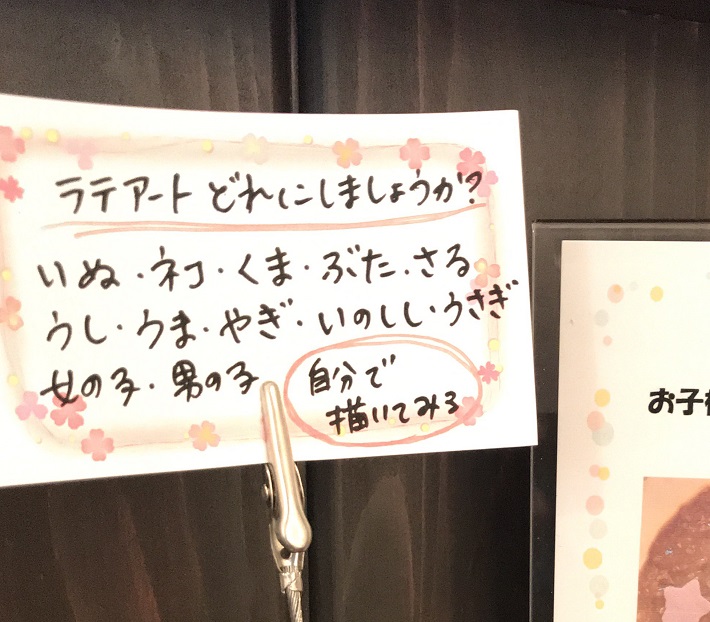 ラテアート どれにしましょうか?
いぬ・ネコ・くま・ぶた・さる
うし・うま・やぎ・いのしし・うさぎ
女の子・男の子
自分で
描いてみる
お子様